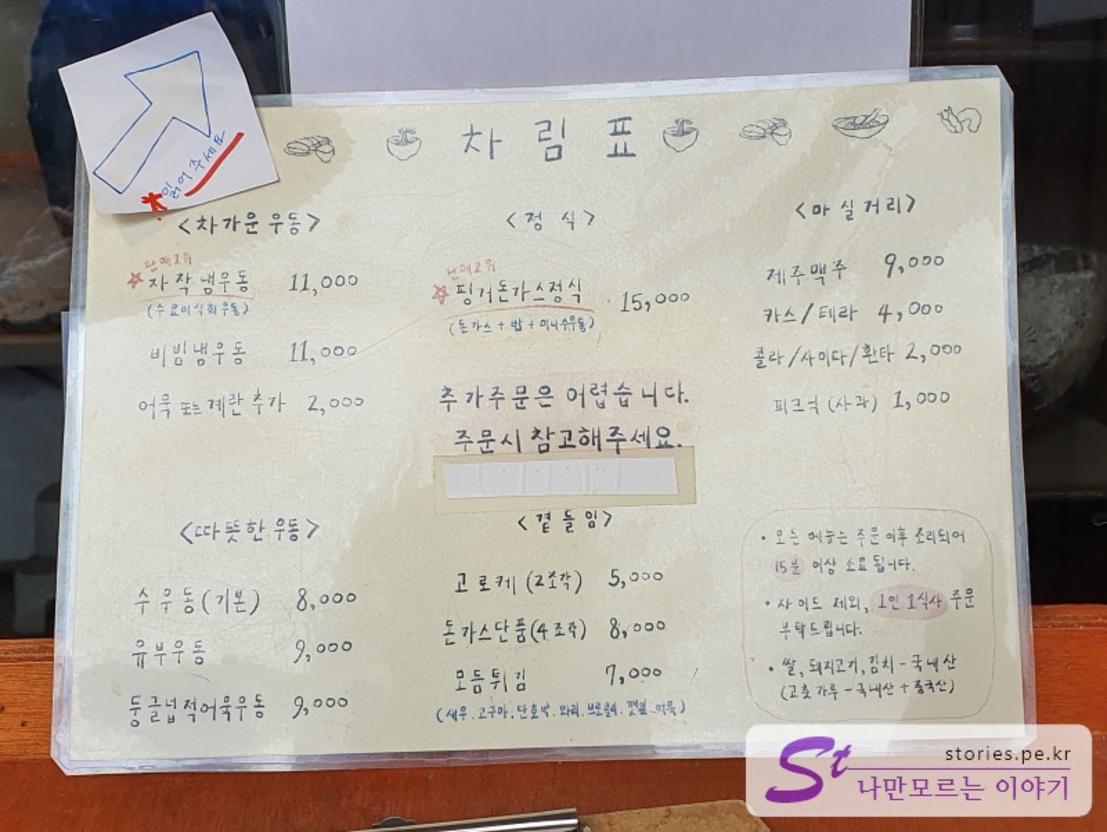 읽어주세요
차림표
<차가운우동>
판매1위
자작냉우동 11,000
비빔냉우동 11,000
어묵 또는 계란 추가 2,000
<따뜻한우동>
수우동(기본) 8,000
유부우동 9,000
둥글넙적어묵우동 9,000
<정식>
판매2위
핑거돈가스정식 15,000
(돈가스+밥+미니수우동)
추가주문은 어렵습니다.
주문시 참고해주세요.
<곁들임>
고로케(2조각) 5,000
돈가스단품(4조각) 8,000
모듬튀김 7,000
(새우.고구마.단호박.꽈리.브로콜리.깻잎.어묵)
<마실거리>
제주맥주 9,000
카스/테라 4,000
콜라/사이다/환타 2,000
피크닉(사과) 1,000
• 모든 메뉴는 주문 이후 조리되어
15분 이상 소요됩니다.
• 사이드 제외, 1인 1식사 주문
부탁드립니다.
• 쌀, 돼지고기, 김치 - 국내산
(고춧가루 - 국내산 + 중국산)
St
stories.pe.kr
나만모르는 이야기